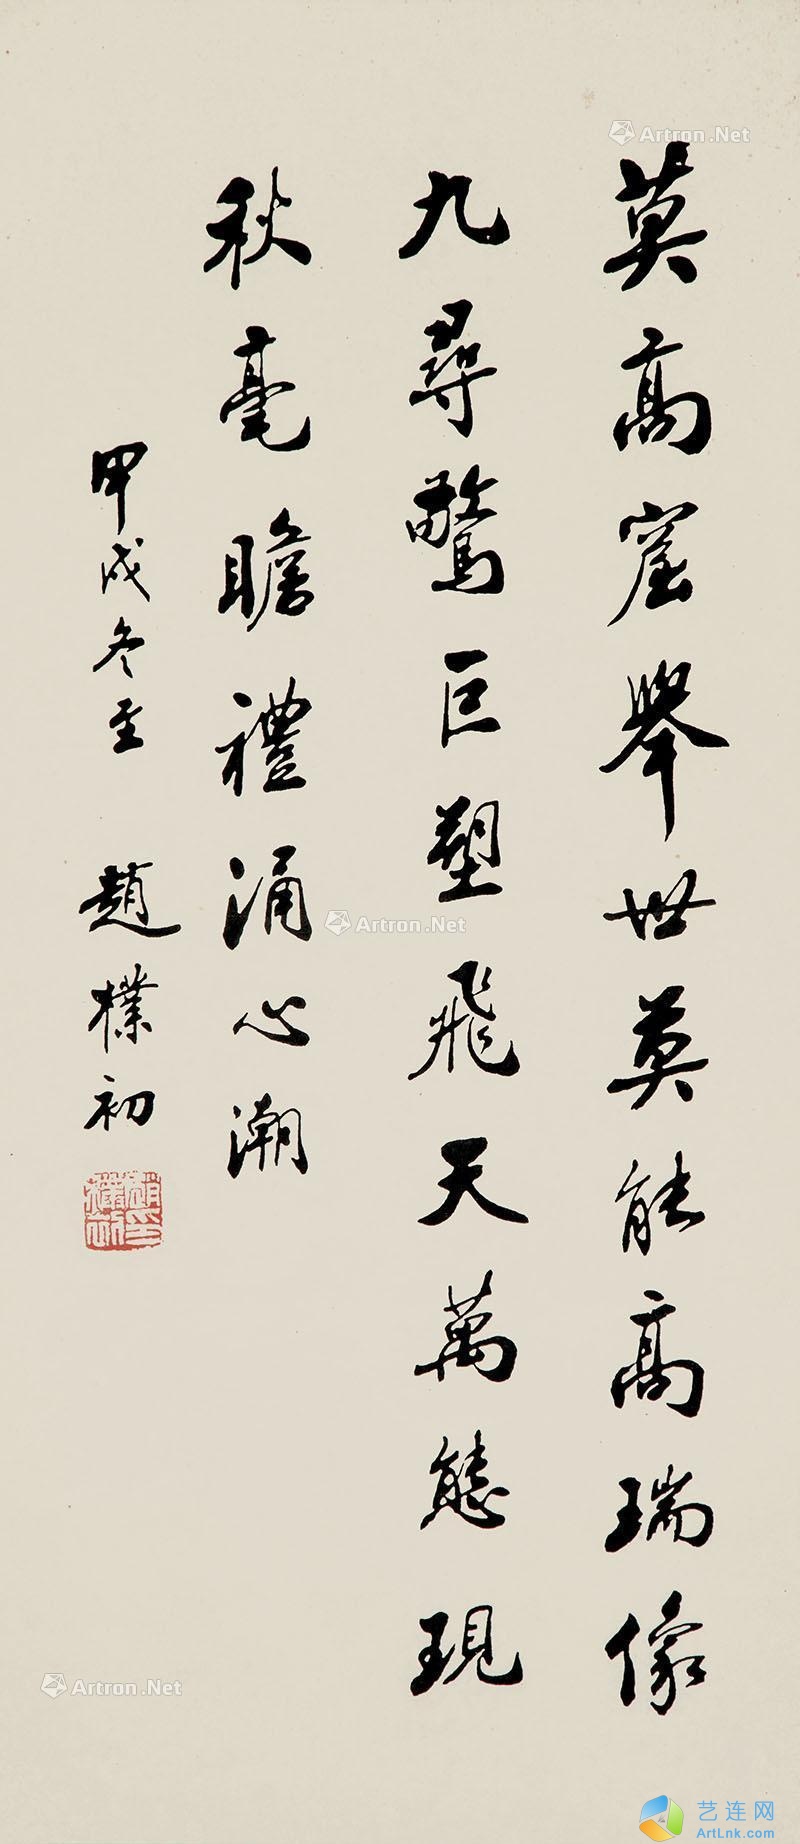 莫高窟舉世莫能高瑞像
九尋驚巨塑飛天萬態現
秋毫瞻禮涌心潮
甲戌冬至 趙樸初
趙樸初印
Artron.Net
Artron.Net
Artron.Net
艺连网
ArtLnk.com